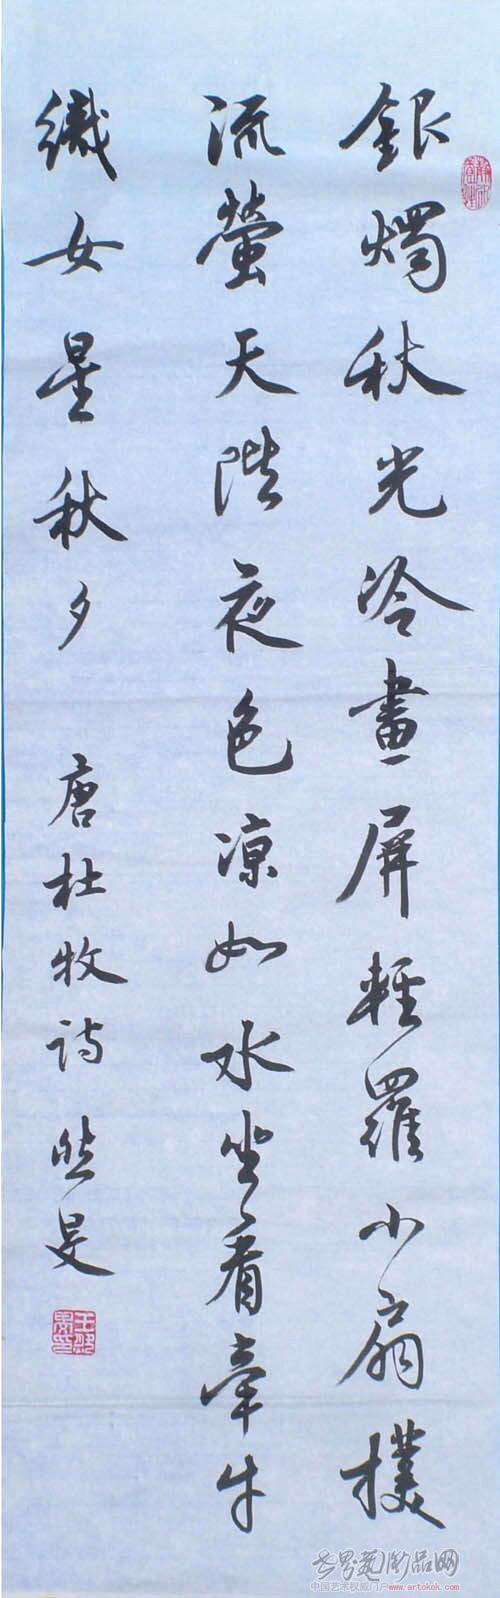 銀燭秋光冷畫屏輕羅小扇撲
流螢天階夜色凉如水坐看牽牛
織女星秋夕
唐杜牧詩
世界艺术品网
中国艺术权威门户www.artokok.com